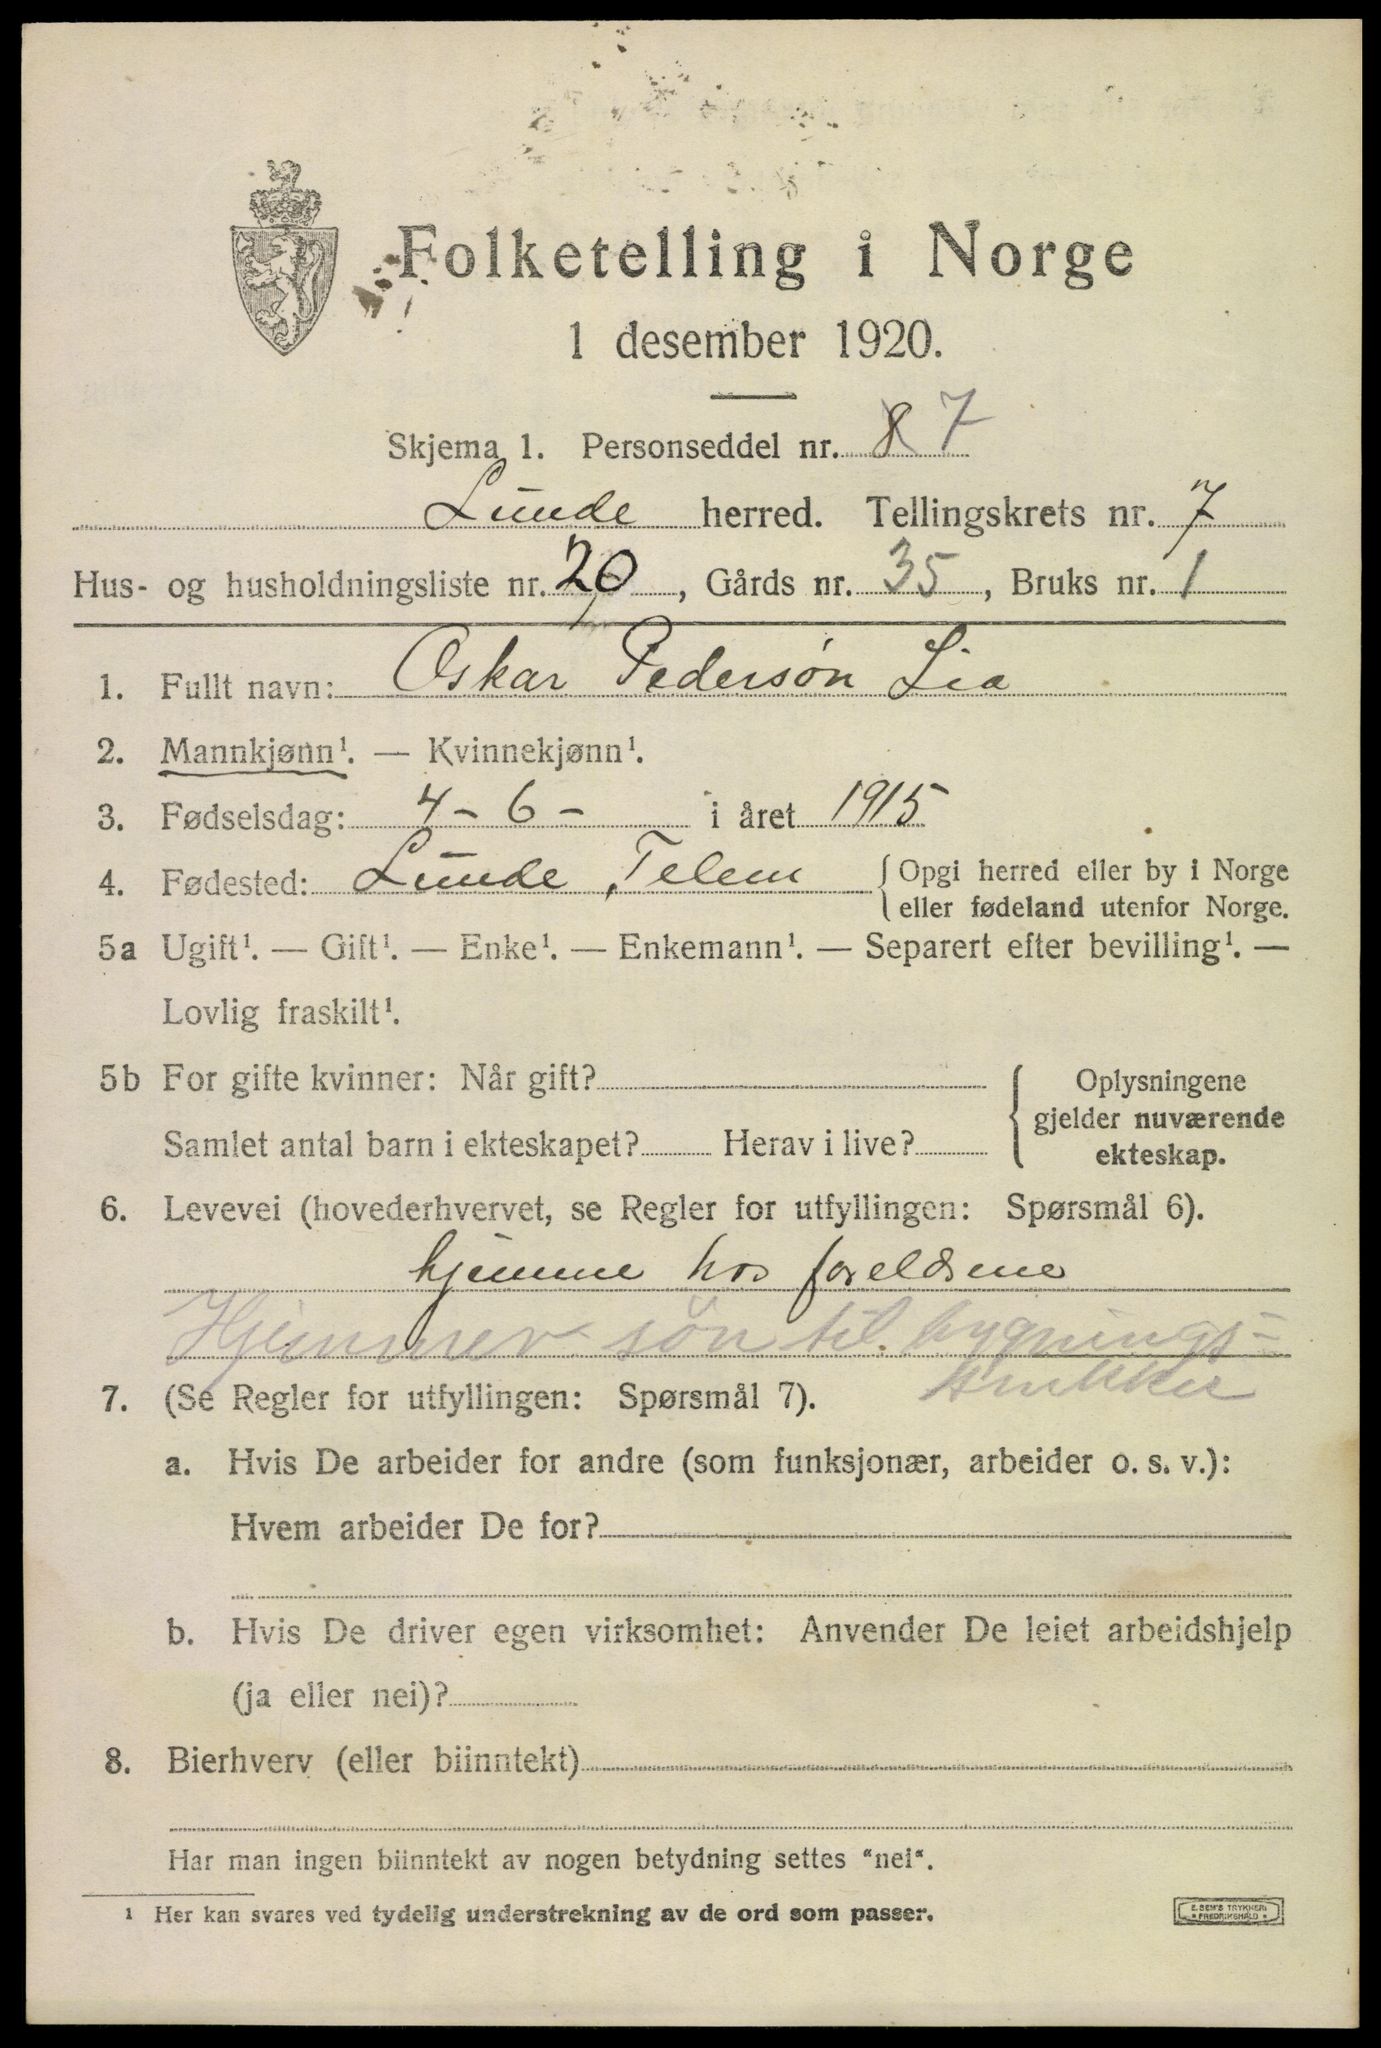 Folketelling i Norge
1 desember 1920.
Skjema 1. Personseddel nr. 8 7
Lunde herred. Tellingskrets nr. 7
Hus- og husholdningsliste nr. 20, Gårds nr. 35, Bruks nr. 1
1. Fullt navn: Oskar Pedersøn Lia
2. Mannkjønn¹. — Kvinnekjønn¹.
3. Fødselsdag: 4 - 6 - i året 1915
4. Fødested: Lunde, Telem { Opgi herred eller by i Norge
eller fødeland utenfor Norge.
5a Ugift¹. — Gift¹. — Enke¹. — Enkemann¹. — Separert efter bevilling¹. —
Lovlig fraskilt¹.
5b For gifte kvinner: Når gift? { Oplysningene
gjelder nuværende
Samlet antal barn i ekteskapet? Herav i live?
ekteskap.
6. Levevei (hovederhvervet, se Regler for utfyllingen: Spørsmål 6).
hjemme hos foreldrene
Hjemmev. søn til bygnings-
snekker
7. (Se Regler for utfyllingen: Spørsmål 7).
a. Hvis De arbeider for andre (som funksjonær, arbeider o. s. v.):
Hvem arbeider De for?
b. Hvis De driver egen virksomhet: Anvender De leiet arbeidshjelp
(ja eller nei)?
8. Bierhverv (eller biinntekt)
Har man ingen biinntekt av nogen betydning settes "nei".
¹ Her kan svares ved tydelig understrekning av de ord som passer.
E. SEM'S TRYKKERI
* FREDRIKSHALD *